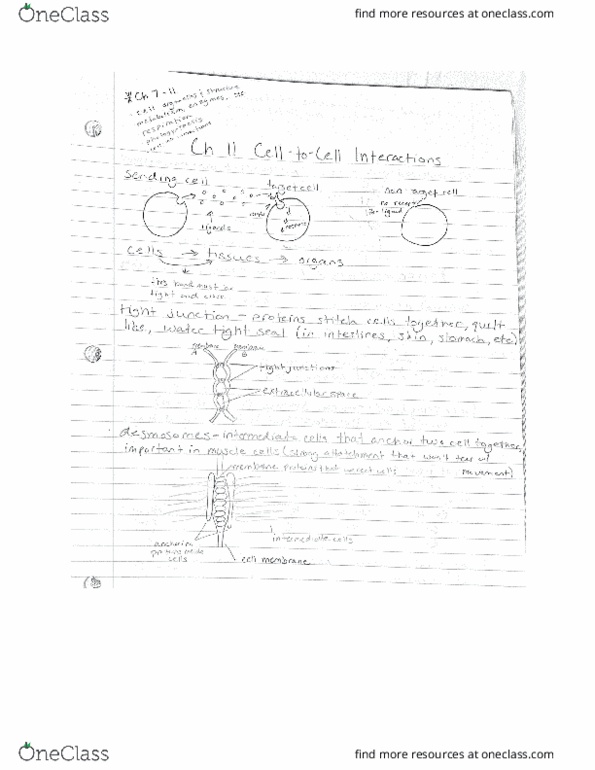 OneClass
find more resources at oneclass.com
Ch 7-11
cell organelles & structure
metabolism, enzymes, etc
respiration
photosynthesis
Ch 11 Cell-to-Cell Interactions
sending cell
target cell
non target cell
ligands
response
cells → tissues → organs
tight and close
tight junction - proteins stitch cells together, quilt
like, water tight seal (in intestines, skin, stomach, etc)
membrane A
membrane B
tight junctions
extracellular space
desmosomes - intermediate cells that anchor two cell together,
important in muscle cells (strong attatchment that won't tear w/
movement)
membrane proteins that connect cells
anchoring
proteins inside
cells
intermediate cells
cell membrane
OneClass
find more resources at oneclass.com